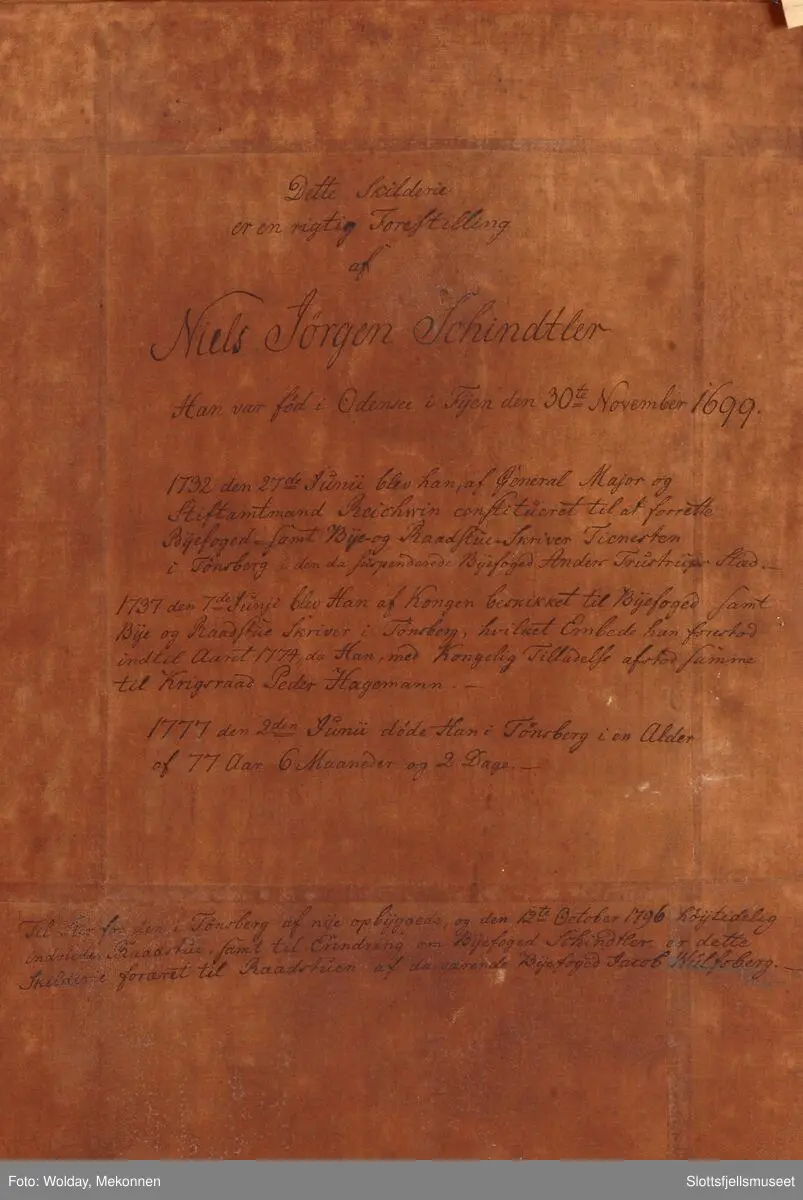 Dette Skilderie
er en rigtig Forestilling
af
Niels Jørgen Schindtler
Han var fød i Odensee i Fÿen den 30te November 1699.
1732 den 27de Junii blev han, af General Major og
Stiftamtmand Reichwin constitueret til at forrette
Bÿefoged- samt Bÿe- og Raadstue-Skriver Tienesten
i Tønsberg i den da suspenderede Bÿefoged Anders Trustrups Stad. —
1737 den 7de Junji blev Han af Kongen beskikket til Bÿefoged samt
Bÿe og Raadstue Skriver i Tønsberg, hvilket Embede han forestod
indtil Aaret 1774, da Han, med Kongelig Tilladelse afstod samme
til Krigsraad Peder Hagemann. —
1777 den 2den Junii døde Han i Tønsberg i en Alder
af 77 Aar 6 Maaneder og 2 Dage. —
Til for den i Tønsberg af nÿe opbÿggede, og den 12te October 1796 høÿtidelig
indviede Raadstue, samt til Erindring om Bÿefoged Schindtler, er dette
Skilderie foræret til Raadstuen af da værende Bÿefoged Jacob Wülfsberg. —
Foto: Wolday, Mekonnen
Slottsfjellsmuseet